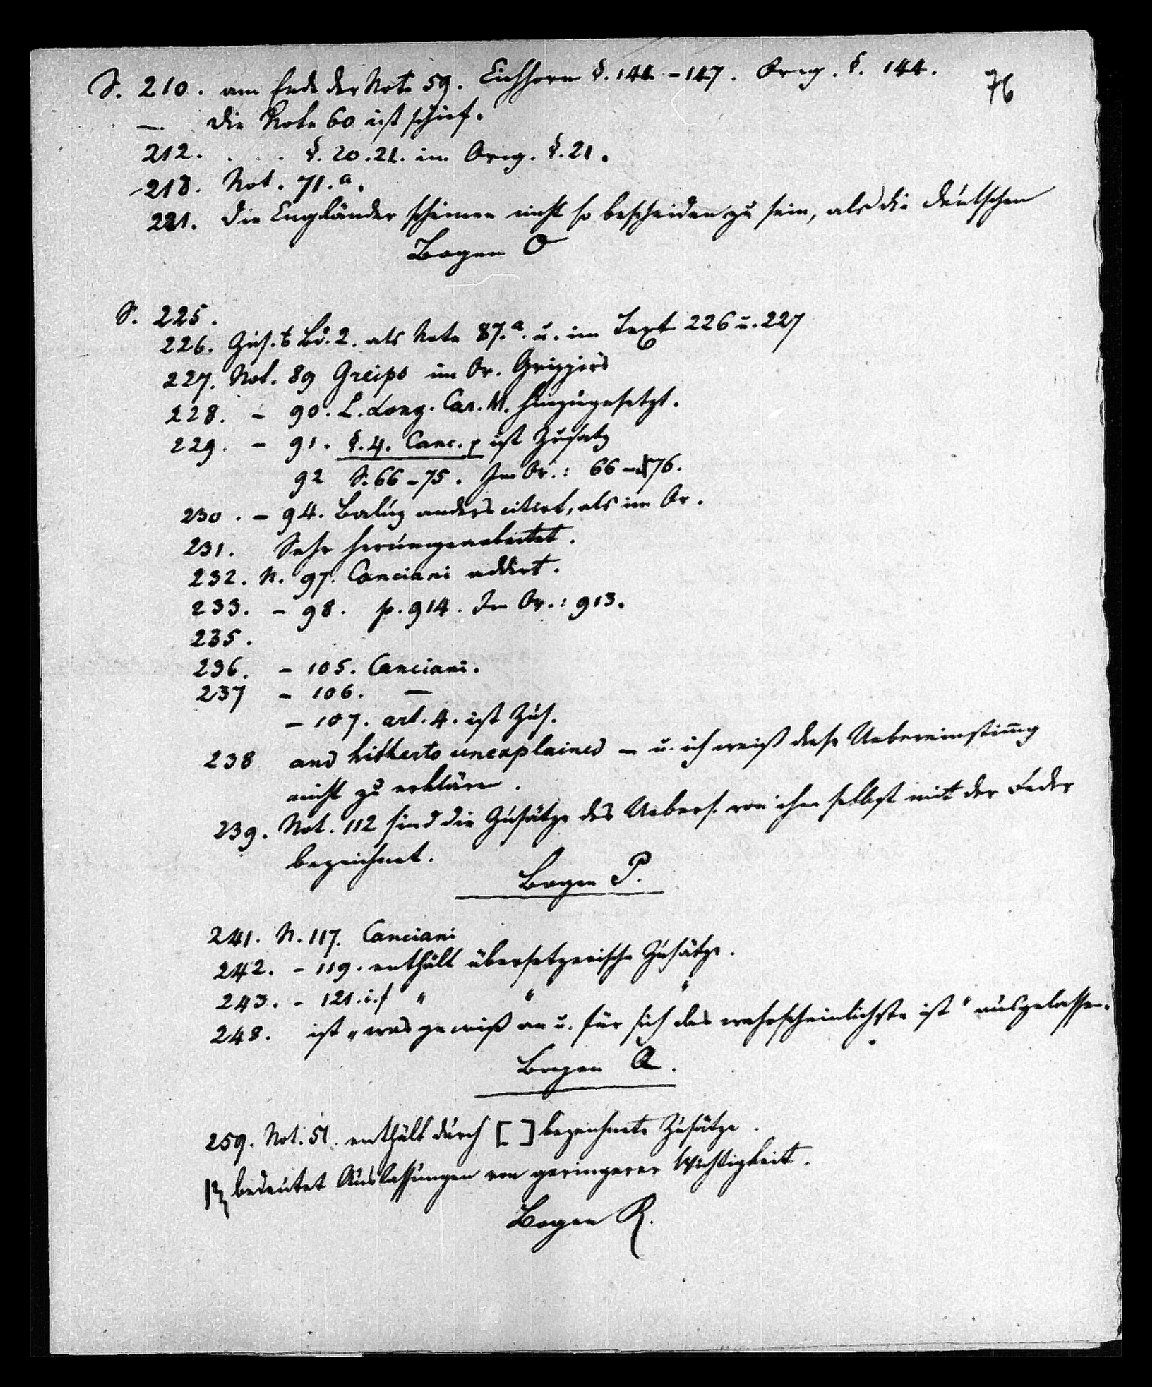 76
S. 210. am Ende der Note 59. Eichhorn §. 144 - 147. Orig. §. 144.
— die Note 60 ist schief.
212. . . . §. 20.21. im Orig. §. 21.
218. Not. 71.a.
221. Die Engländer scheinen nicht so bescheiden zu sein, als die Deutschen
Bogen O
S. 225.
226. Zus. Bd. 2. als Note 87.a. u. im Text 226 u. 227
227. Not. 89 Greips im Or. Grippis
228. - 90. L. Long. Car. M. hinzugesetzt.
229. - 91. §. 4. Canc. ist Zusatz
92 S. 66-75. Im Or.: 66-76.
230. - 94. Baluz anders citirt, als im Or.
231. Sehr herumgearbeitet.
232. N. 97. Canciani addirt.
233. - 98. p. 914. Im Or.: 913.
235.
236. - 105. Canciani.
237 - 106. —
- 107. art. 4. ist Zus.
238 and hitherto unexplained — u. ich weiß diese Uebereinstimmg
nicht zu erklären.
239. Not. 112 sind die Zusätze des Uebers. von ihm selbst mit der Feder
bezeichnet.
Bogen P.
241. N. 117. Canciani
242. - 119. enthält übersetzerische Zusätze.
243. - 121. i.f " " "
248. ist „was gewiß an u. für sich das wahrscheinlichste ist“ ausgelassen.
Bogen Q.
259. Not. 51. enthält durch [ ] bezeichnete Zusätze.
bedeutet Auslassungen von geringerer Wichtigkeit.
Bogen R.